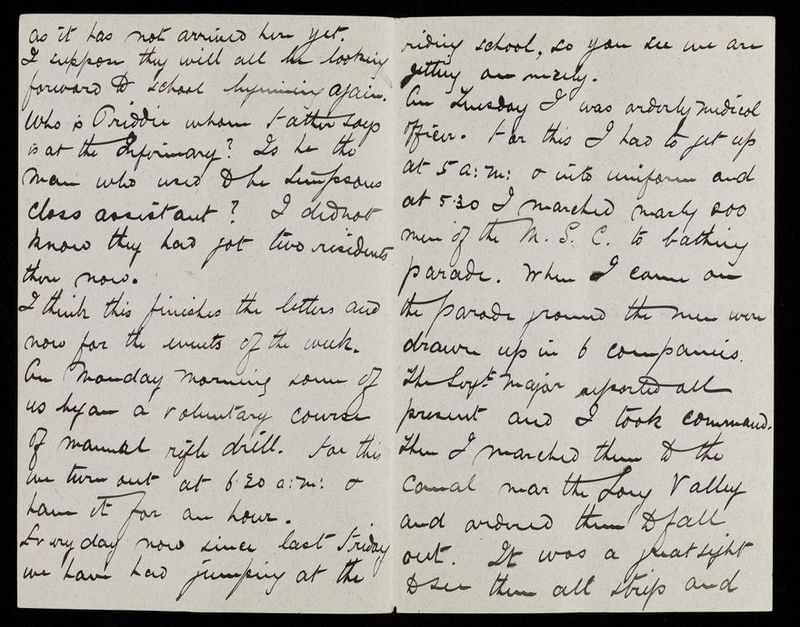 as it has not arrived here yet.
I suppose they will all be looking
forward to school beginning again.
Who is Priddie whom Father says
is at the Infirmary? Is he the
man who used to be Simpsons
class assistant? I did not
know they had got two residents
there now.
I think this finishes the letters and
now for the events of the week.
On Monday morning some of
us began a voluntary course
of manual rifle drill. For this
we turn out at 6.20 a:m: &
have it for an hour.
Every day now since last Friday
we have had jumping at the
riding school, so you see we are
getting on nicely.
On Tuesday I was orderly medical
officer. For this I had to get up
at 5 a:m: & into uniform and
at 5.30 I marched nearly 800
men of the M. S. C. to bathing
parade. When I came on
the parade ground the men were
drawn up in 6 companies.
The Sergt Major reported all
present and I took command.
Then I marched them to the
Canal near the Long Valley
and ordered them to fall
out. It was a great sight
to see them all strip and